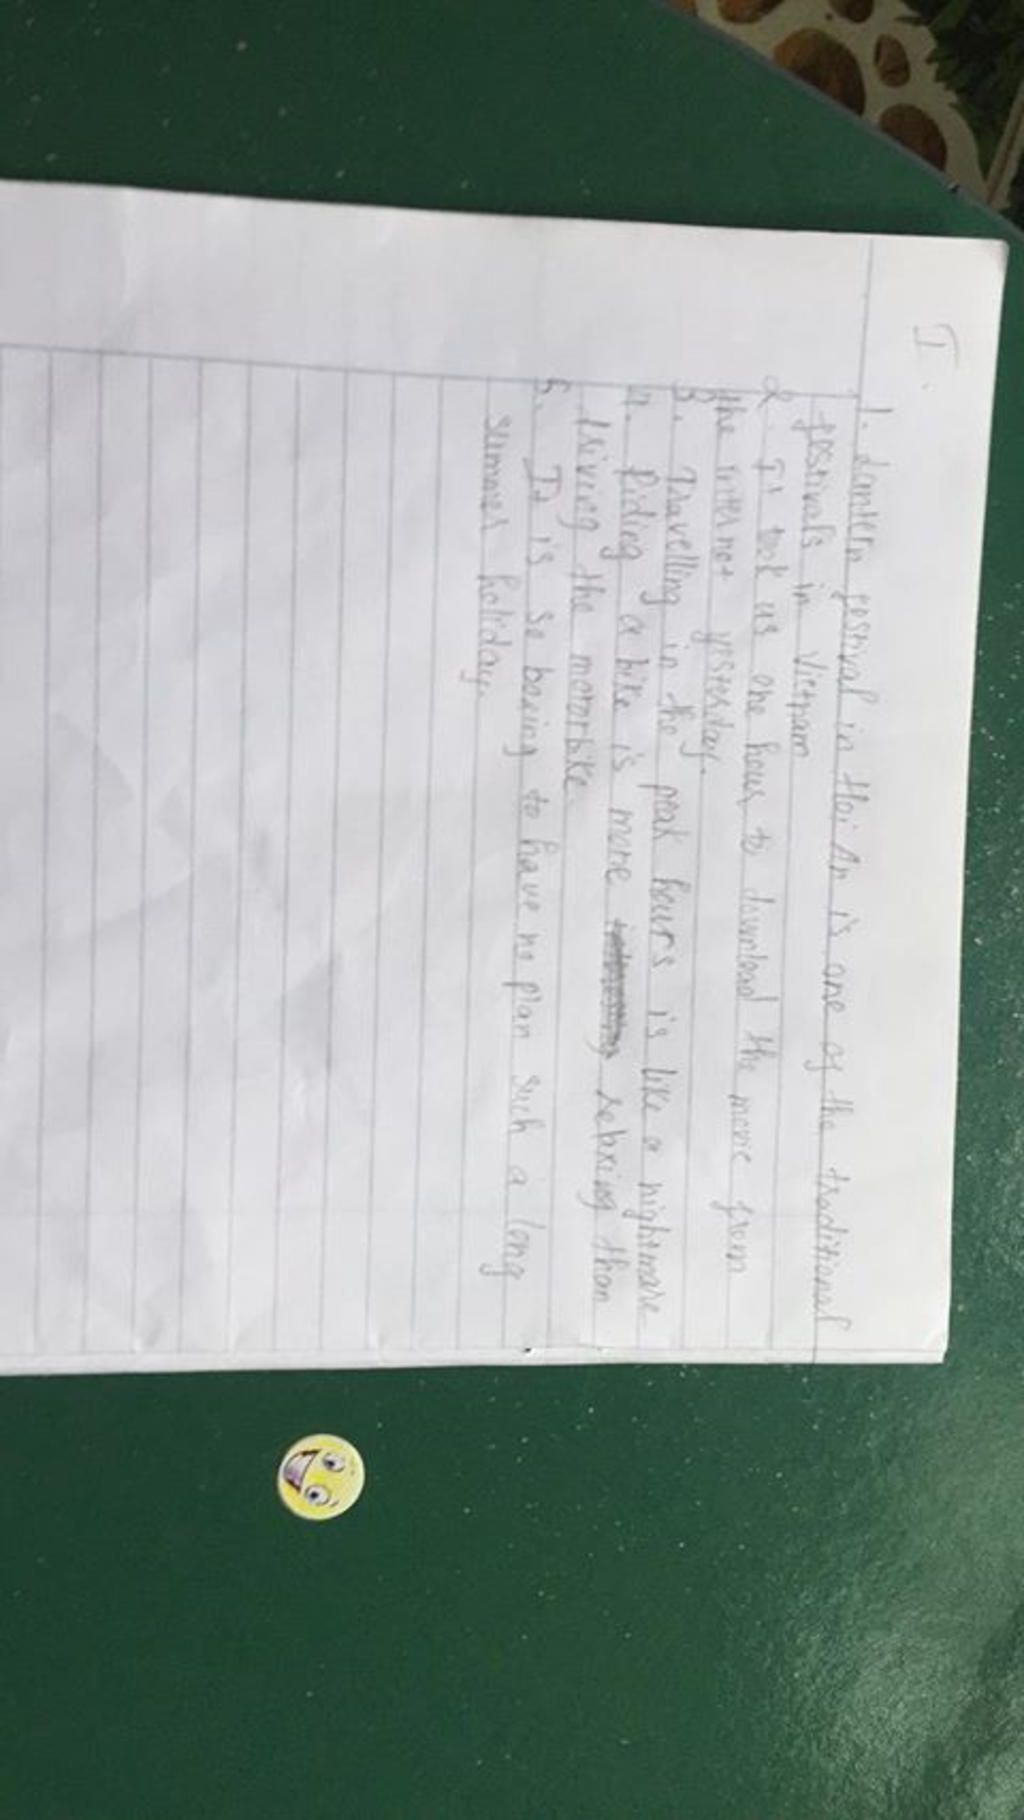 I.
1. Lantern festival in Hoi An is one of the traditional
festivals in Vietnam
2. It took us one hour to download the movie from
the internet yesterday.
3. Travelling in the peak hours is like a nightmare
4. Riding a bike is more relaxing than
driving the motorbike.
5. It is so boring to have no plan such a long
summer holiday.